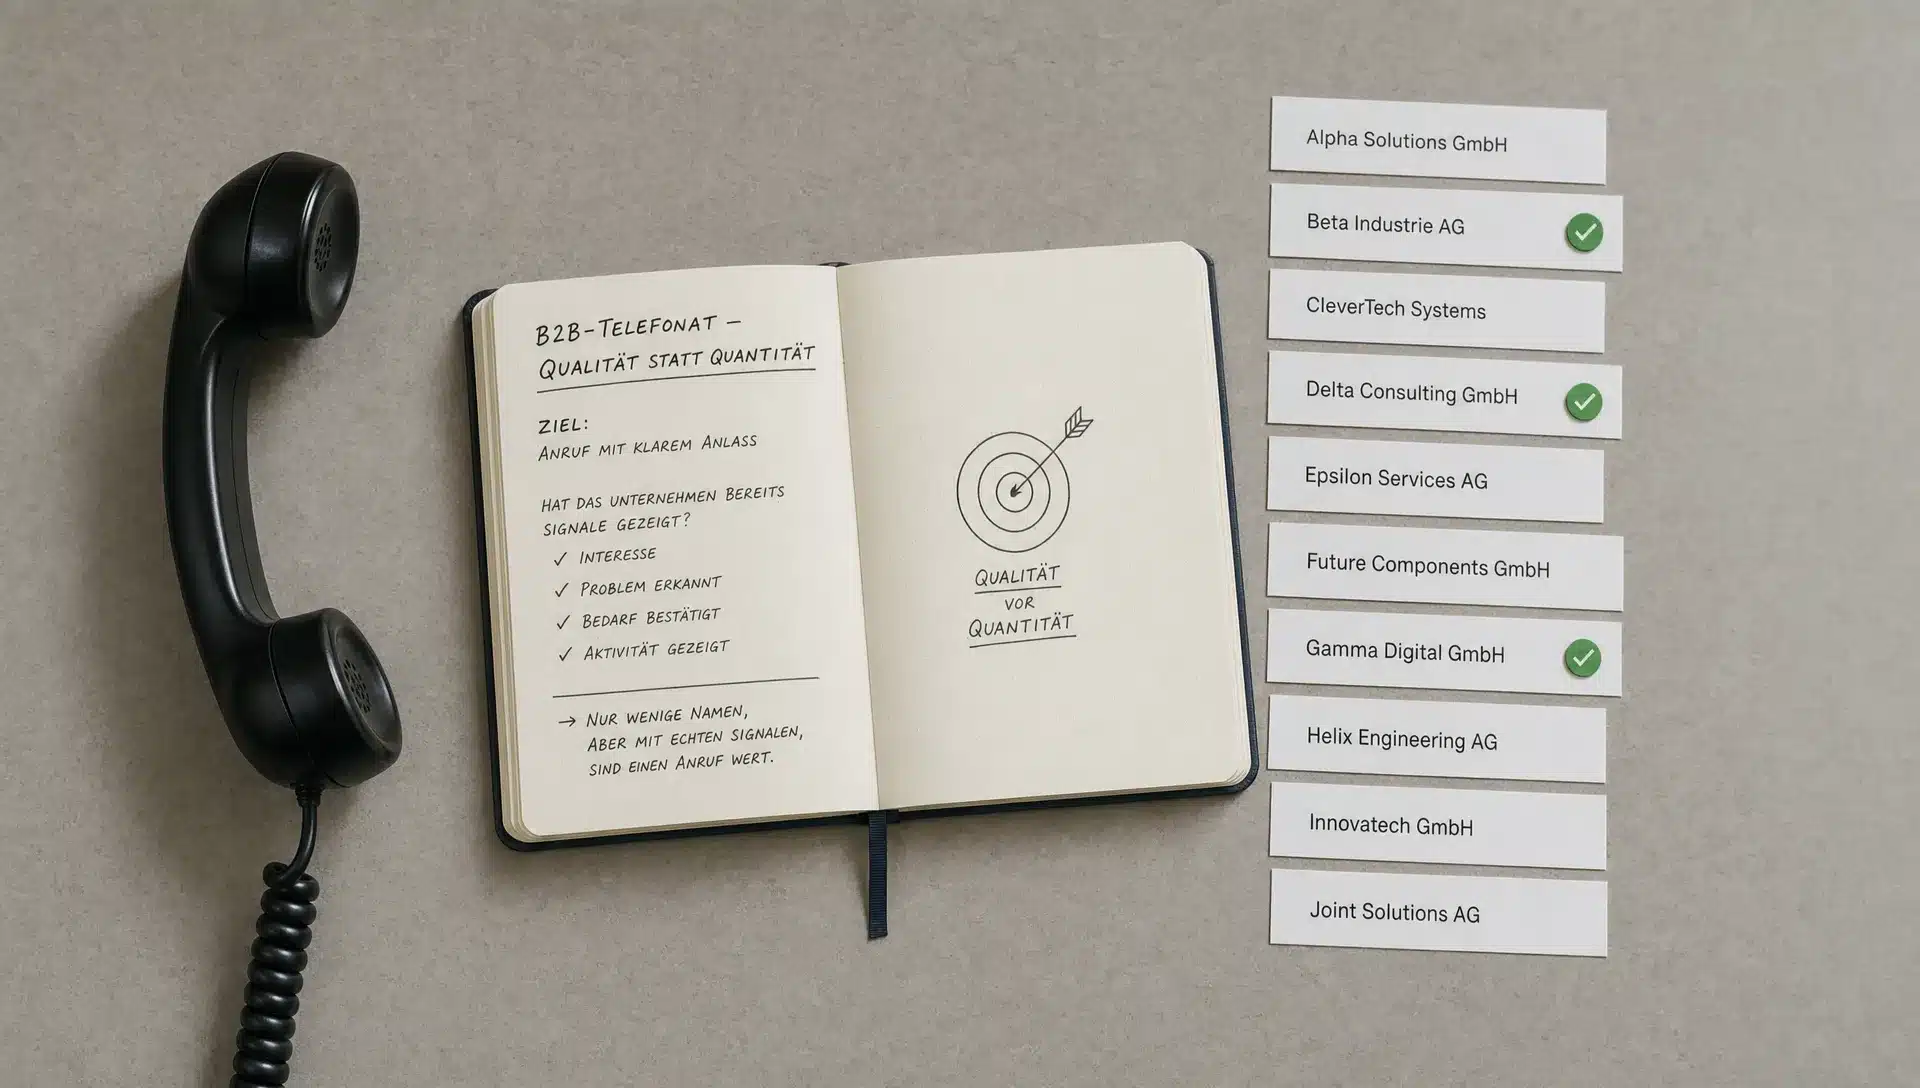 B2B-TELEFONAT –
QUALITÄT STATT QUANTITÄT
ZIEL:
ANRUF MIT KLAREM ANLASS
HAT DAS UNTERNEHMEN BEREITS
SIGNALE GEZEIGT?
✓ INTERESSE
✓ PROBLEM ERKANNT
✓ BEDARF BESTÄTIGT
✓ AKTIVITÄT GEZEIGT
→ NUR WENIGE NAMEN,
ABER MIT ECHTEN SIGNALEN,
SIND EINEN ANRUF WERT.
QUALITÄT
VOR
QUANTITÄT
Alpha Solutions GmbH
Beta Industrie AG
CleverTech Systems
Delta Consulting GmbH
Epsilon Services AG
Future Components GmbH
Gamma Digital GmbH
Helix Engineering AG
Innovatech GmbH
Joint Solutions AG